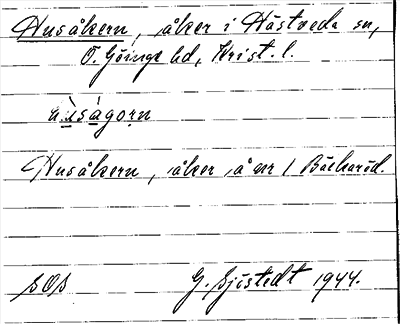 Husåkern, åker i Hästveda sn,
Ö. Göinge hd, Krist. l.
Husåkern, åker å nr 1 Bäckaröd.
SOS G. Sjöstedt 1944.